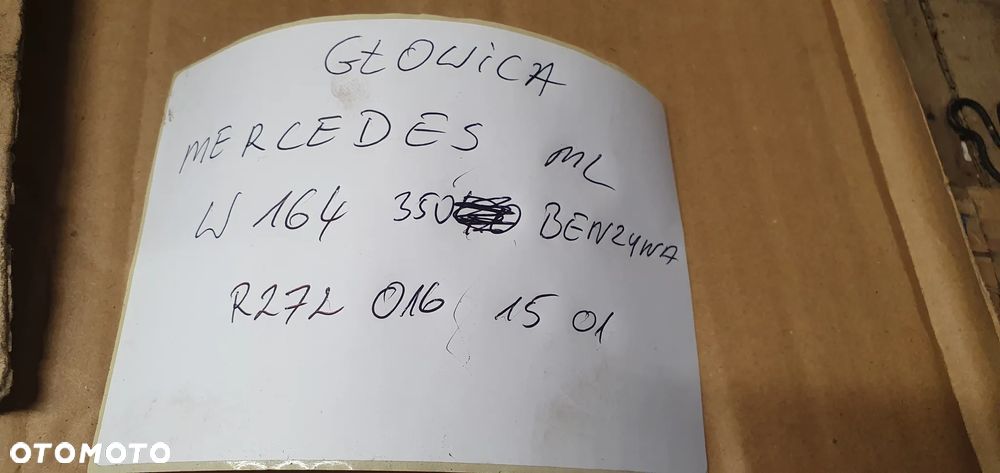 GŁOWICA
MERCEDES ML
W 164 350 BENZYNA
R272 016 15 01
OTOMOTO